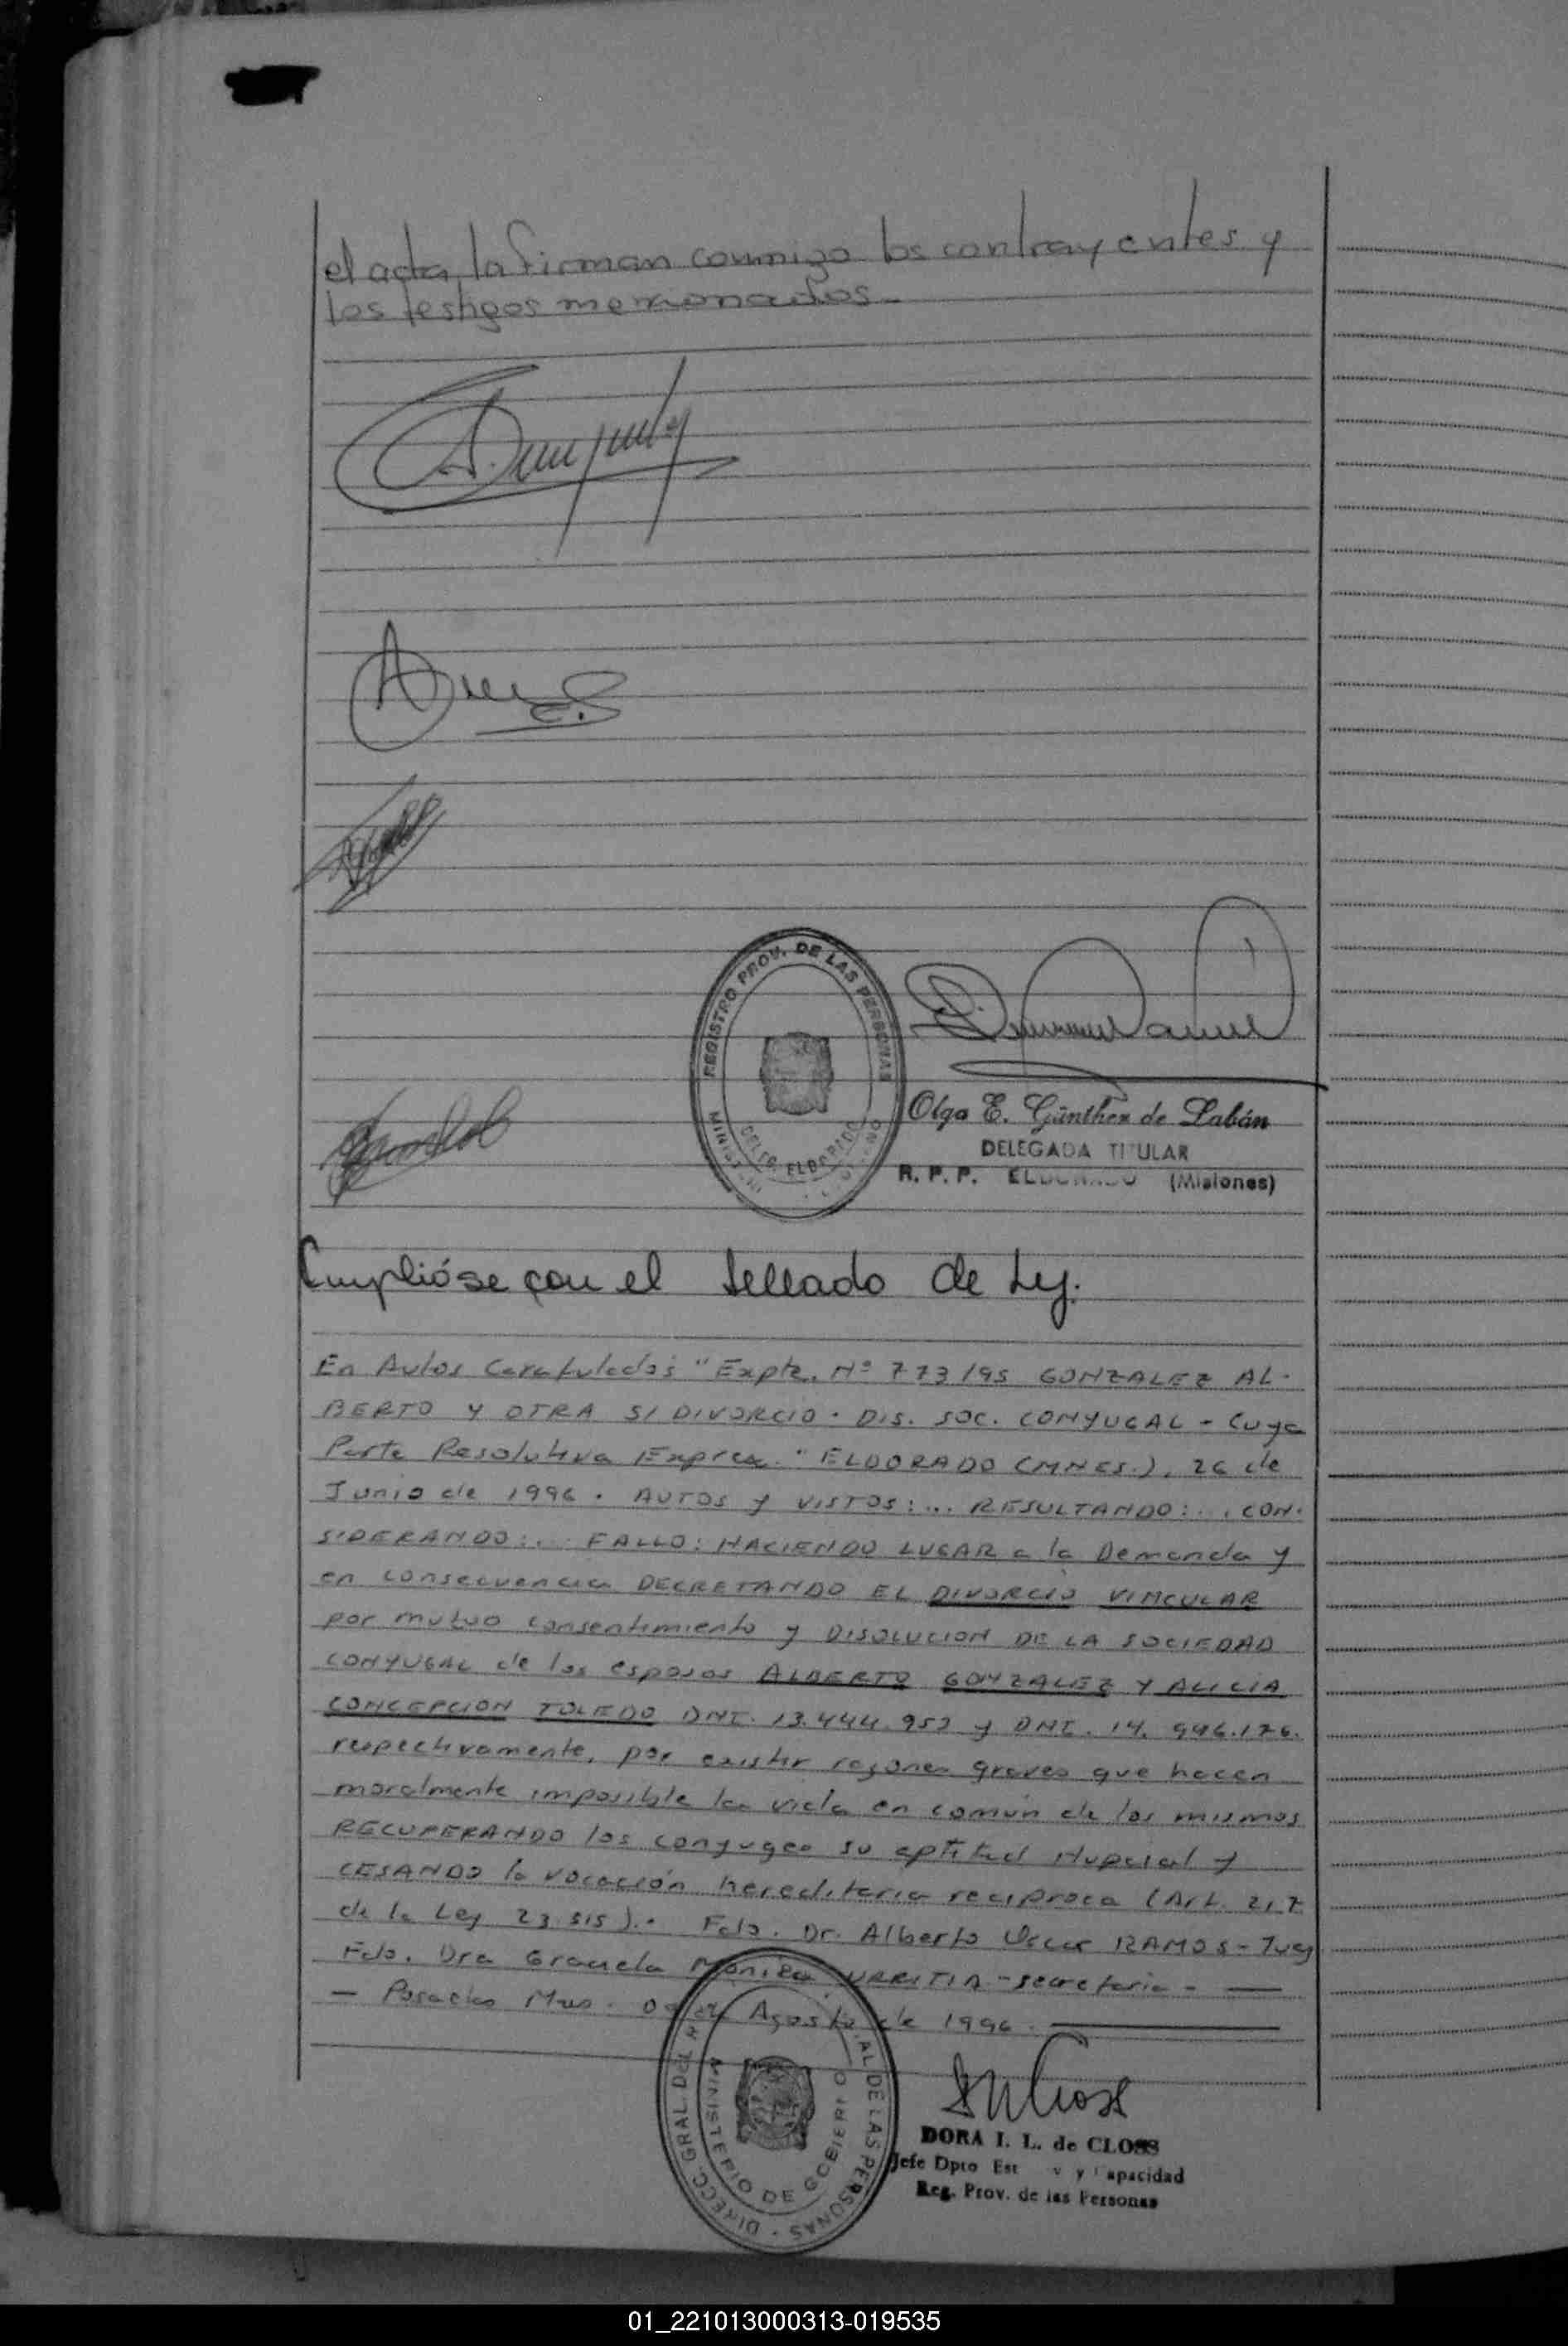 el acta, la firman conmigo los contrayentes y
los testigos mencionados.-
REGISTRO PROV. DE LAS PERSONAS
DELEG. ELDORADO
Olga E. Günther de Labán
DELEGADA TITULAR
R. P. P. ELDORADO (Misiones)
Cumplióse con el sellado de Ley.
En Autos Caratulados "Expte. Nº 773/95 GONZALEZ AL-
BERTO Y OTRA S/ DIVORCIO - DIS. SOC. CONYUGAL - Cuya
Parte Resolutiva Expresa. "ELDORADO (MNES.), 26 de
Junio de 1996. AUTOS y VISTOS:... RESULTANDO:... CON-
SIDERANDO:... FALLO: HACIENDO LUGAR a la Demanda y
en consecuencia DECRETANDO EL DIVORCIO VINCULAR
por mutuo consentimiento y DISOLUCION DE LA SOCIEDAD
CONYUGAL de los esposos ALBERTO GONZALEZ Y ALICIA
CONCEPCION TOLEDO DNI. 13.444.952 y DNI. 14.946.176.
respectivamente, por existir razones graves que hacen
moralmente imposible la vida en común de los mismos
RECUPERANDO los conyuges su aptitud Nupcial y
CESANDO la vocación hereditaria reciproca (Art. 217
de la Ley 23.515).- Fdo. Dr. Alberto Oscar RAMOS - Juez
Fdo. Dra Graciela Mónica URRUTIA - secretaria -
- Posadas Mnes. de Agosto de 1996.
DIRECC. GRAL. DEL AL DE LAS PERSONAS
MINISTERIO DE GOBIERNO
DORA I. L. de CLOSS
Jefe Dpto Est v y Capacidad
Reg. Prov. de las Personas
01_221013000313-019535